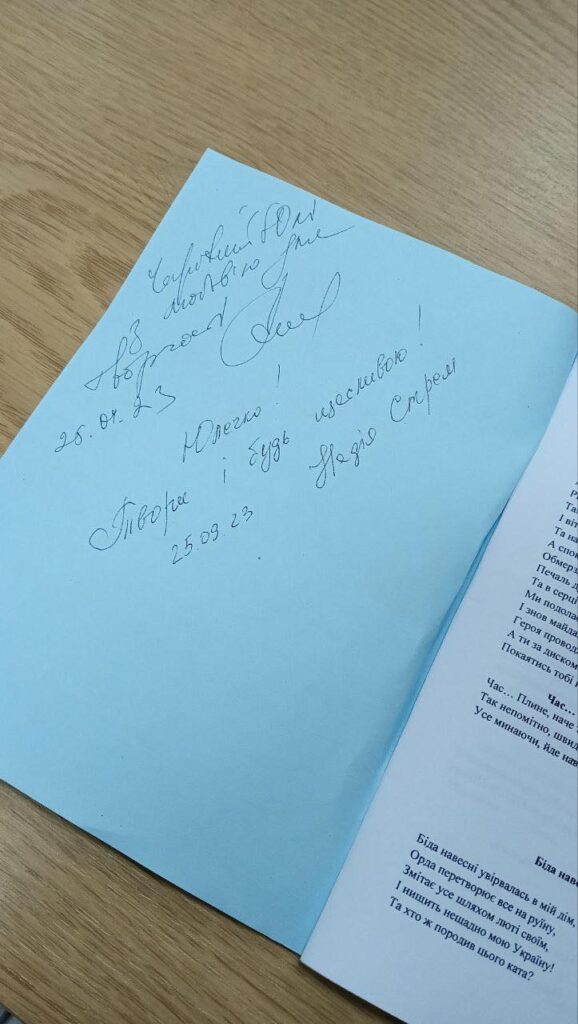 Чарівній Юлі
З любовʼю для
творчості
25.09.23
Юлечко!
Твори і будь щасливою!
25.09.23 Надія Стрем
Та
І віт
Та на
А спок
Обмерз
Печаль д
Та в серці
Ми подола
І знов майда
Героя провод
А ти за диском
Покаятись тобі
Час...
Час... Плине, наче
Так непомітно, швид
Усе минаючи, йде нав
Біда наве
Біда навесні увірвалась в мій дім,
Орда перетворює все на руїну,
Змітає усе шляхом люті своїм,
І нищить нещадно мою Україну!
Та хто ж породив цього ката?